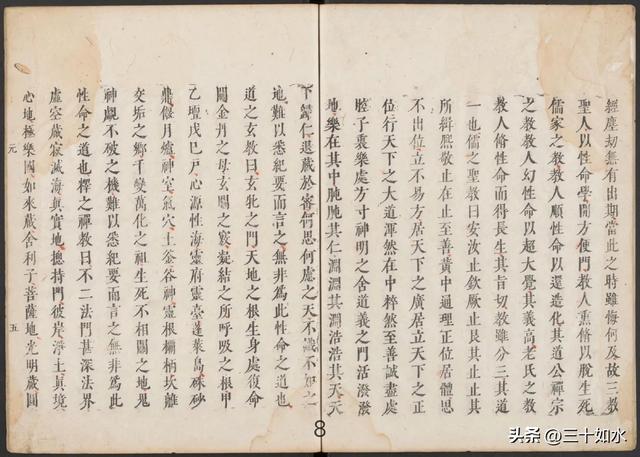 經塵劫無有出期當此之時雖悔何及故三教
聖人以性命學開方便門教人熏脩以脫生死
儒家之教教人順性命以還造化其道公禪宗
之教教人幻性命以超大覺其義高老氏之教
教人脩性命而得長生其旨切教雖分三其道
一也儒之聖教曰安汝止欽厥止艮其止止其
所緝熙敬止在止至善黃中通理正位居體思
不出位立不易方居天下之廣居立天下之正
位行天下之大道渾然在中粹然至善誠盡處
腔子裏樂處方寸神明之舍道義之門活潑潑
地樂在其中肫肫其仁淵淵其淵浩浩其天天
下歸仁退藏於密何思何慮之天不識不知之
地難以悉紀要而言之無非為此性命之道也
道之玄教曰玄牝之門天地之根生身處復命
關金丹之母玄關之竅凝結之所呼吸之根甲
乙壇戊己戶心源性海靈府靈臺蓬萊島硃砂
鼎偃月爐神室氣穴土釜谷神靈根欛柄坎離
交垢之鄉千變萬化之祖生死不相關之地鬼
神覷不破之機難以悉紀要而言之無非為此
性命之道也釋之禪教曰不二法門甚深法界
虛空藏寂滅海真實地總持門彼岸淨土真境
心地極樂國如來藏舍利子菩薩地光明藏圓
元 五
8
头条 @三十如水